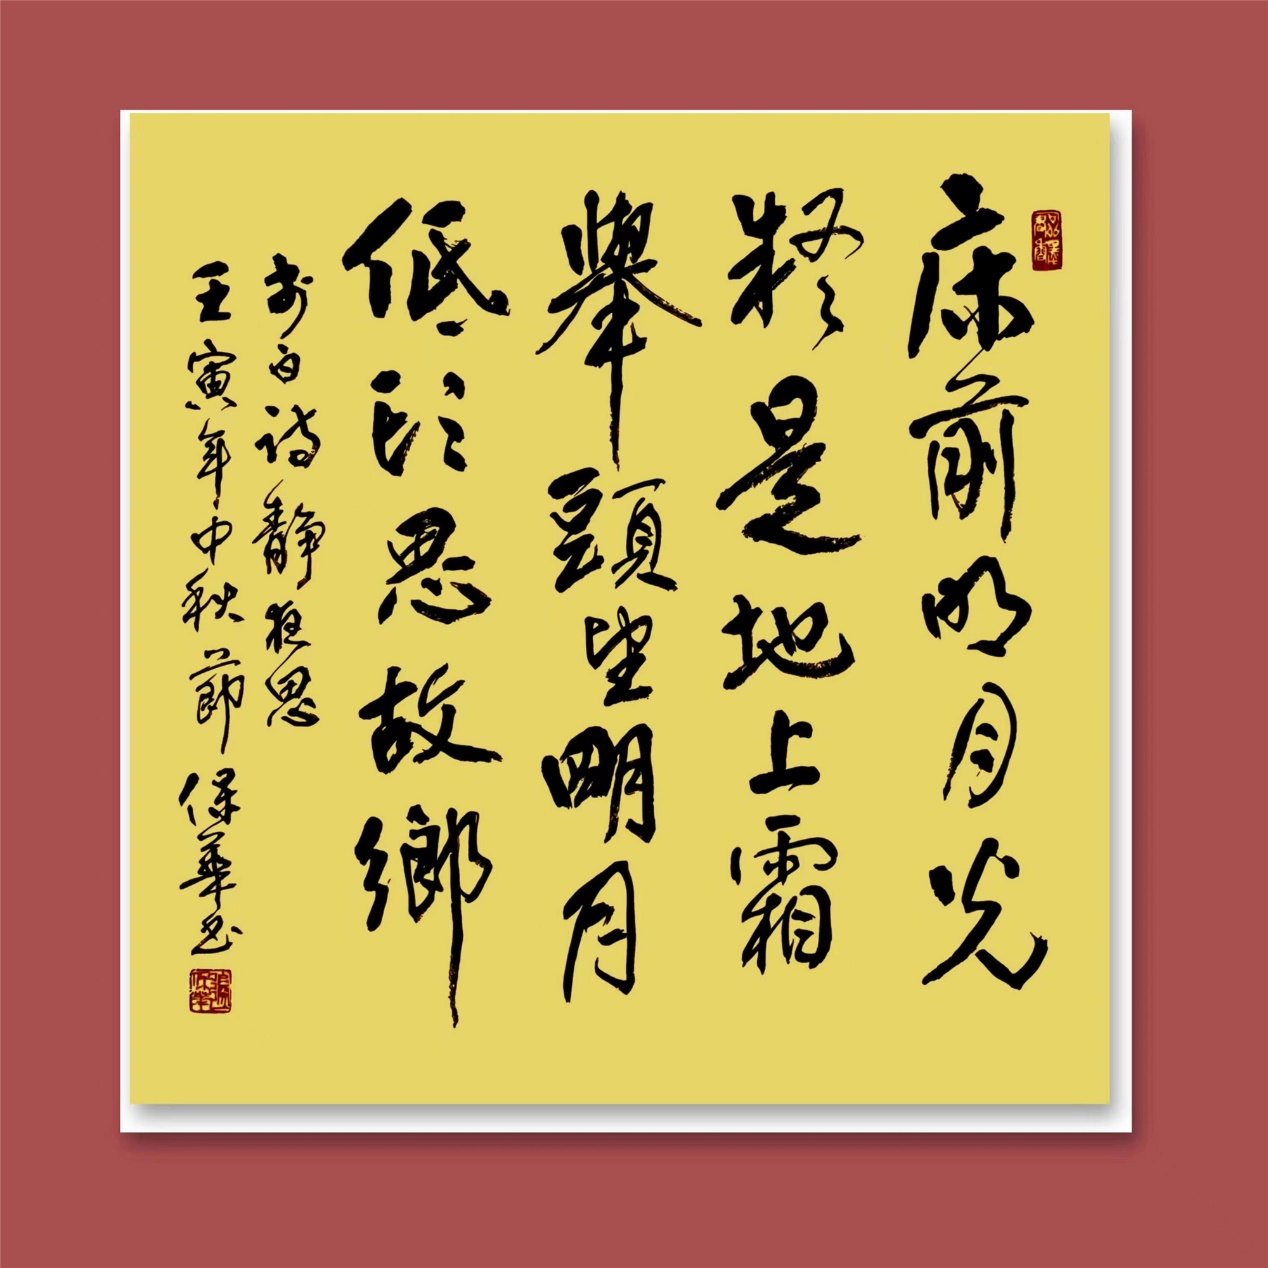 床前明月光
疑是地上霜
舉頭望明月
低頭思故鄉
李白诗静夜思
壬寅年中秋節保華书